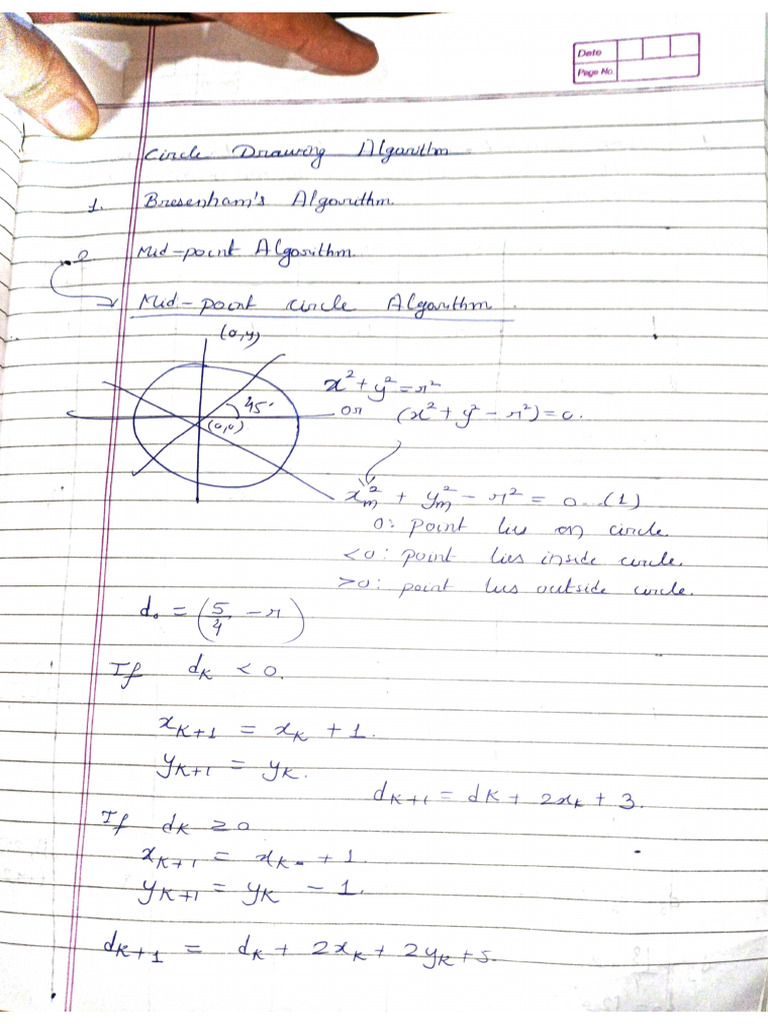 Date
Page No.
Circle Drawing Algorithm
1. Bresenham's Algorithm.
2 Mid-point Algorithm.
Mid-point circle Algorithm.
(0,y)
x² + y² = r²
45°
or (x² + y² - r²) = 0.
(0,0)
xₘ² + yₘ² - r² = 0...(1)
0: point lies on circle.
<0: point lies inside circle.
>0: point lies outside circle.
d₀ = (5/4 - r)
If dₖ < 0.
xₖ₊₁ = xₖ + 1.
yₖ₊₁ = yₖ.
dₖ₊₁ = dₖ + 2xₖ + 3.
If dₖ ≥ 0
xₖ₊₁ = xₖ + 1.
yₖ₊₁ = yₖ - 1.
dₖ₊₁ = dₖ + 2xₖ + 2yₖ + 5.